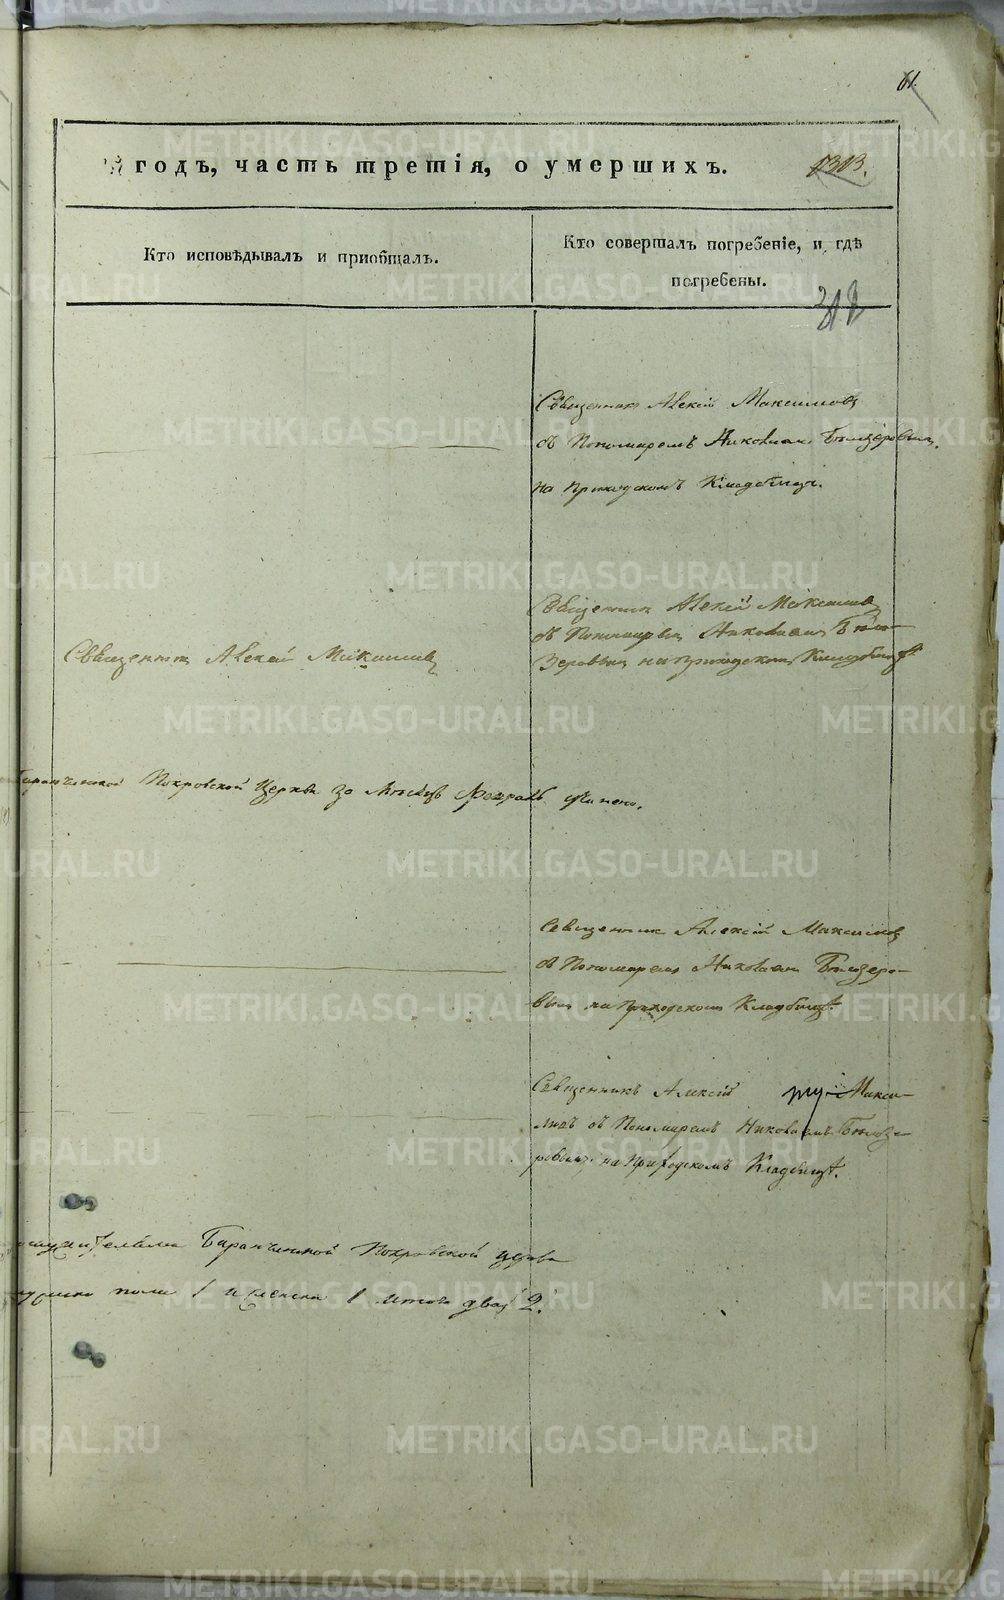 61.
годъ, часть третія, о умершихъ.
1313.
Кто исповѣдывалъ и пріобщалъ.
Кто совершалъ погребеніе, и гдѣ
погребены.
312
Священник Алексій Максимовъ
съ Пономаремъ Николаемъ Бѣлозеровым
на приходскомъ Кладбищѣ.
Священник Алексій Максимовъ
Священник Алексій Максимовъ
съ Пономаремъ Николаемъ Бѣло-
зеровым на приходском Кладбищѣ
Баранчинской Покровской Церкви за Мѣсяцъ Февраль
Священник Алексій Максимовъ
съ Пономаремъ Николаем Бѣлозеро-
вым на Приходском Кладбищѣ.
Священникъ Алексій Макси-
мовъ съ Пономаремъ Николаемъ Бѣлозе-
ровымъ на Приходскомъ Кладбищѣ.
Баранчинской Покровской церкви
пола 1 и женска 1 итого два 2.
METRIKI.GASO-URAL.RU